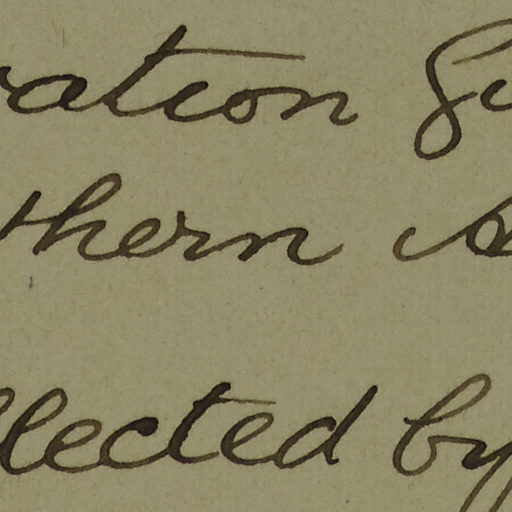 ration
thern
llected by